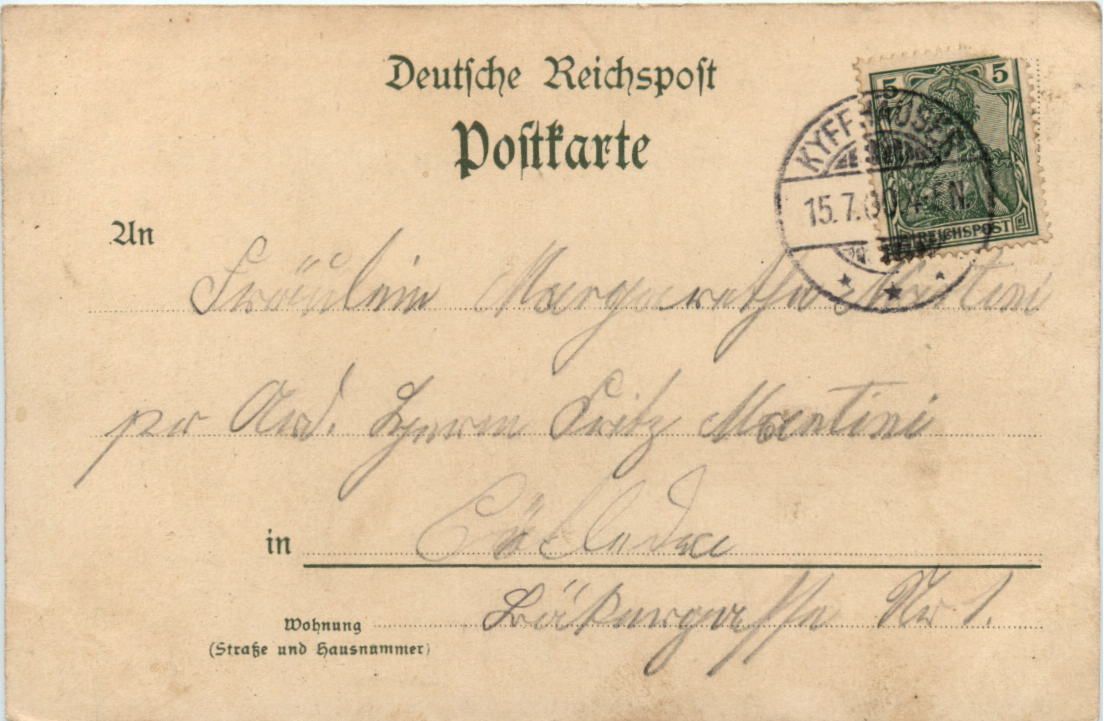 Deutsche Reichspost
Postkarte
5 5
KYFFHÄUSER
15.7.00. 4-5 N.
REICHSPOST
An
Fräulein Margarethe Martini
per Adr. Herrn Fritz Martini
in Cölleda
Wohnung
(Straße und Hausnummer)
Bäkergasse Nr 1.